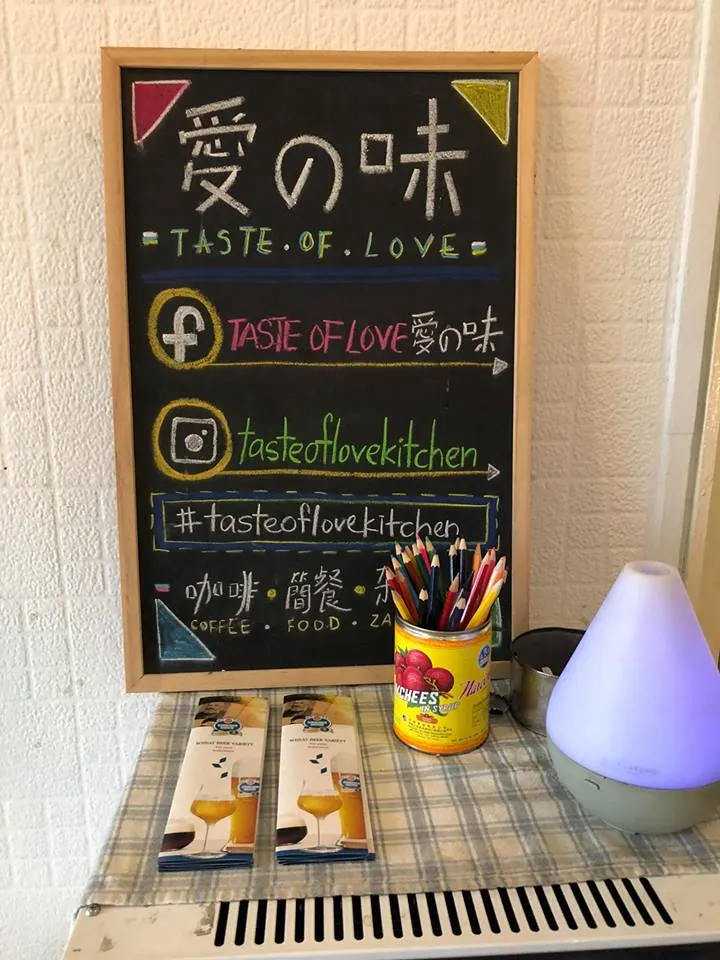 愛の味
TASTE.OF.LOVE
f TASTE OF LOVE 愛の味
tasteoflovekitchen
#tasteoflovekitchen
咖啡・簡餐・
COFFEE・FOOD・ZA
LYCHEES
IN SYRUP
WHEAT BEER VARIETY
WHEAT BEER VARIETY